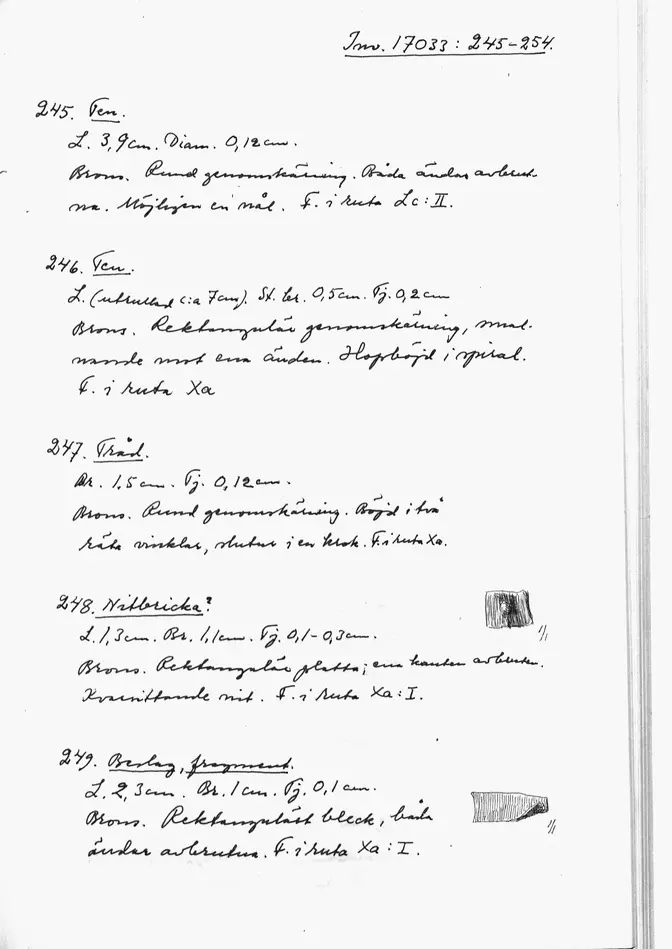 Inv. 17033: 245-254.
245. Ten.
L. 3,9cm. Diam. 0,12cm.
Brons. Rund genomskärning. Båda ändar avbrut-
na. Möjligen en nål. F. i ruta Lc: II.
246. Ten.
L. (utrullad c:a 7cm). St. br. 0,5cm. Tj. 0,2cm
Brons. Rektangulär genomskärning, smal-
nande mot ena änden. Hopböjd i spiral.
F. i ruta Xa
247. Tråd.
Br. 1,5cm. Tj. 0,12cm.
Brons. Rund genomskärning. Böjd i två
räta vinklar, slutar i en krok. F. i ruta Xa.
248. Nitbricka?
L. 1,3cm. Br. 1,1cm. Tj. 0,1-0,3cm.
1/1
Brons. Rektangulär platta; ena kanten avbruten.
Kvarsittande nit. F. i ruta Xa: I.
249. Beslag, fragment.
L. 2,3cm. Br. 1cm. Tj. 0,1cm.
Brons. Rektangulärt bleck, båda
1/1
ändar avbrutna. F. i ruta Xa: I.